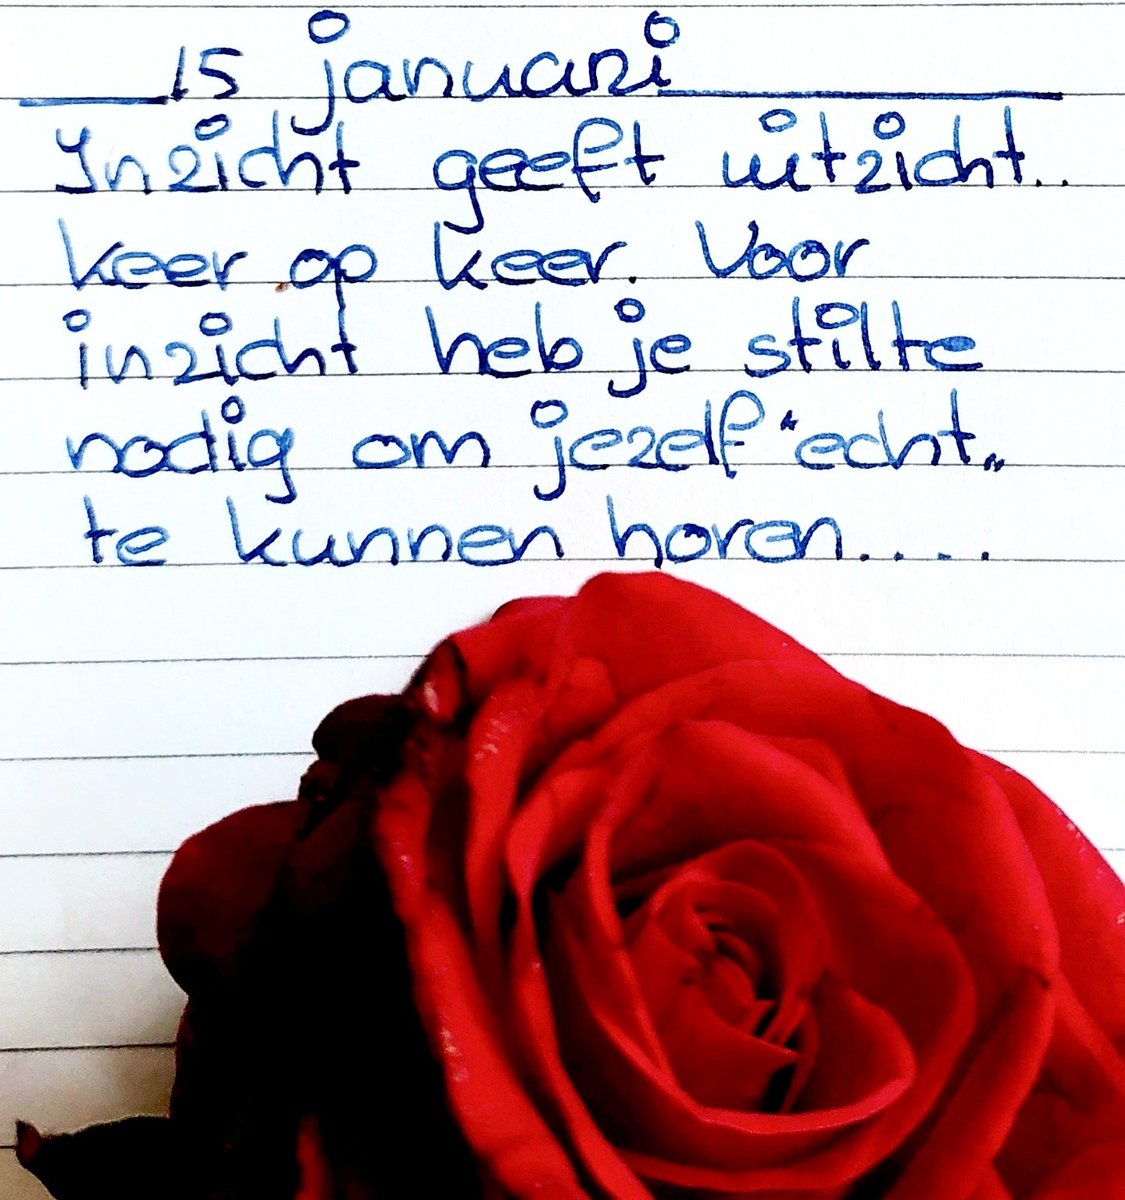 15 januari
Inzicht geeft uitzicht..
keer op keer. Voor
inzicht heb je stilte
nodig om jezelf "echt„
te kunnen horen.....